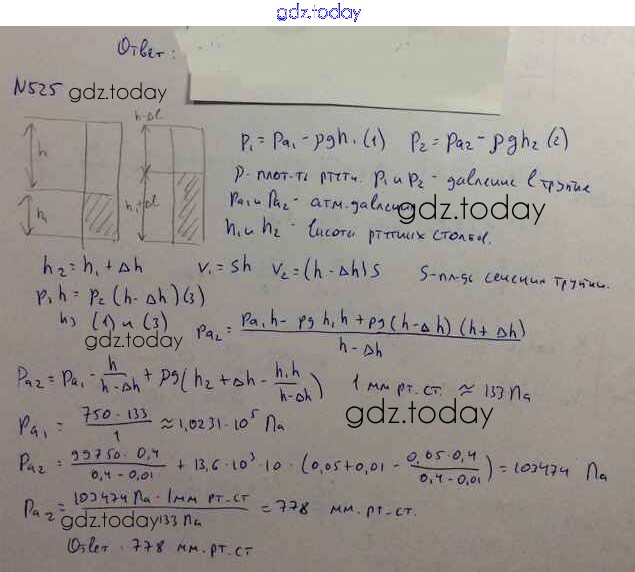 gdz.today
Ответ:
N525 gdz.today
h-Δl
h
h₁
h₁+Δl
p₁ = pa₁ - ρgh₁ (1) p₂ = pa₂ - ρgh₂ (2)
ρ - плот-ть ртути. p₁ и p₂ - давление в трубке
pa₁ и pa₂ - атм. давление
gdz.today
h₁ и h₂ - высоты ртутных столбов.
h₂ = h₁ + Δh V₁ = Sh V₂ = (h - Δh)S S - пл-дь сечения трубки.
p₁h = p₂(h - Δh) (3)
из (1) и (3) pa₂ = (pa₁h - ρgh₁h + ρg(h - Δh)(h + Δh))/(h - Δh)
gdz.today
pa₂ = pa₁ - h/(h - Δh) + ρg(h₂ + Δh - h₁h/(h - Δh)) 1 мм рт. ст. ≈ 133 Па
gdz.today
pa₁ = (750 · 133)/1 ≈ 1,0231 · 10⁵ Па
pa₂ = (99750 · 0,4)/(0,4 - 0,01) + 13,6 · 10³ · 10 · (0,05 + 0,01 - (0,05 · 0,4)/(0,4 - 0,01)) = 103474 Па
pa₂ = (103474 Па · 1 мм рт. ст)/(133 Па) = 778 мм. рт. ст.
gdz.today
Ответ: 778 мм. рт. ст